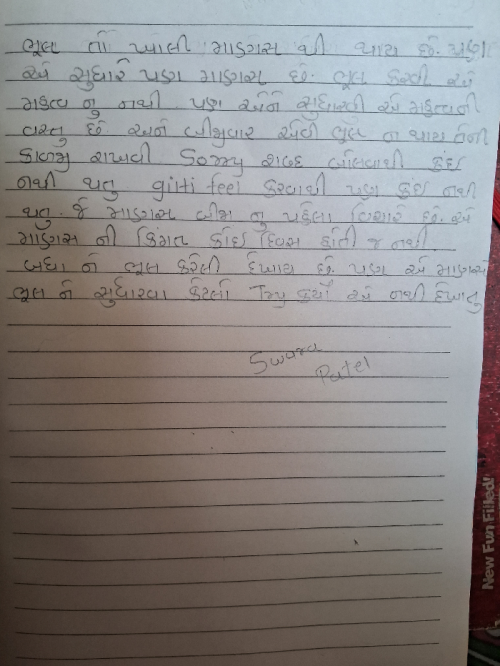 ભૂલ તો ખાલી માણસ થી થાય છે. પણ
એ સુધારે પણ માણસ છે. ભૂલ કરવી એ
મહત્વ નુ નથી પણ એને સુધારવી એ મહત્વની
વસ્તુ છે. અને બીજીવાર એવી ભૂલ ન થાય તેની
કાળજી રાખવી Sorry શબ્દ બોલવાથી કંઇ
નથી થતુ gilti feel કરવાથી પણ કંઇ નથી
થતુ. જે માણસ બીજા નુ પહેલા વિચારે છે. એ
માણસ ની કિંમત કોઇ દિવસ હોતી જ નથી.
બધા ને ભૂલ કરેલી દેખાય છે. પણ એ માણસે
ભૂલ ને સુધારવા કેટલો Try કર્યો એ નથી દેખાતુ
Swara
Patel
New Fun Filled!